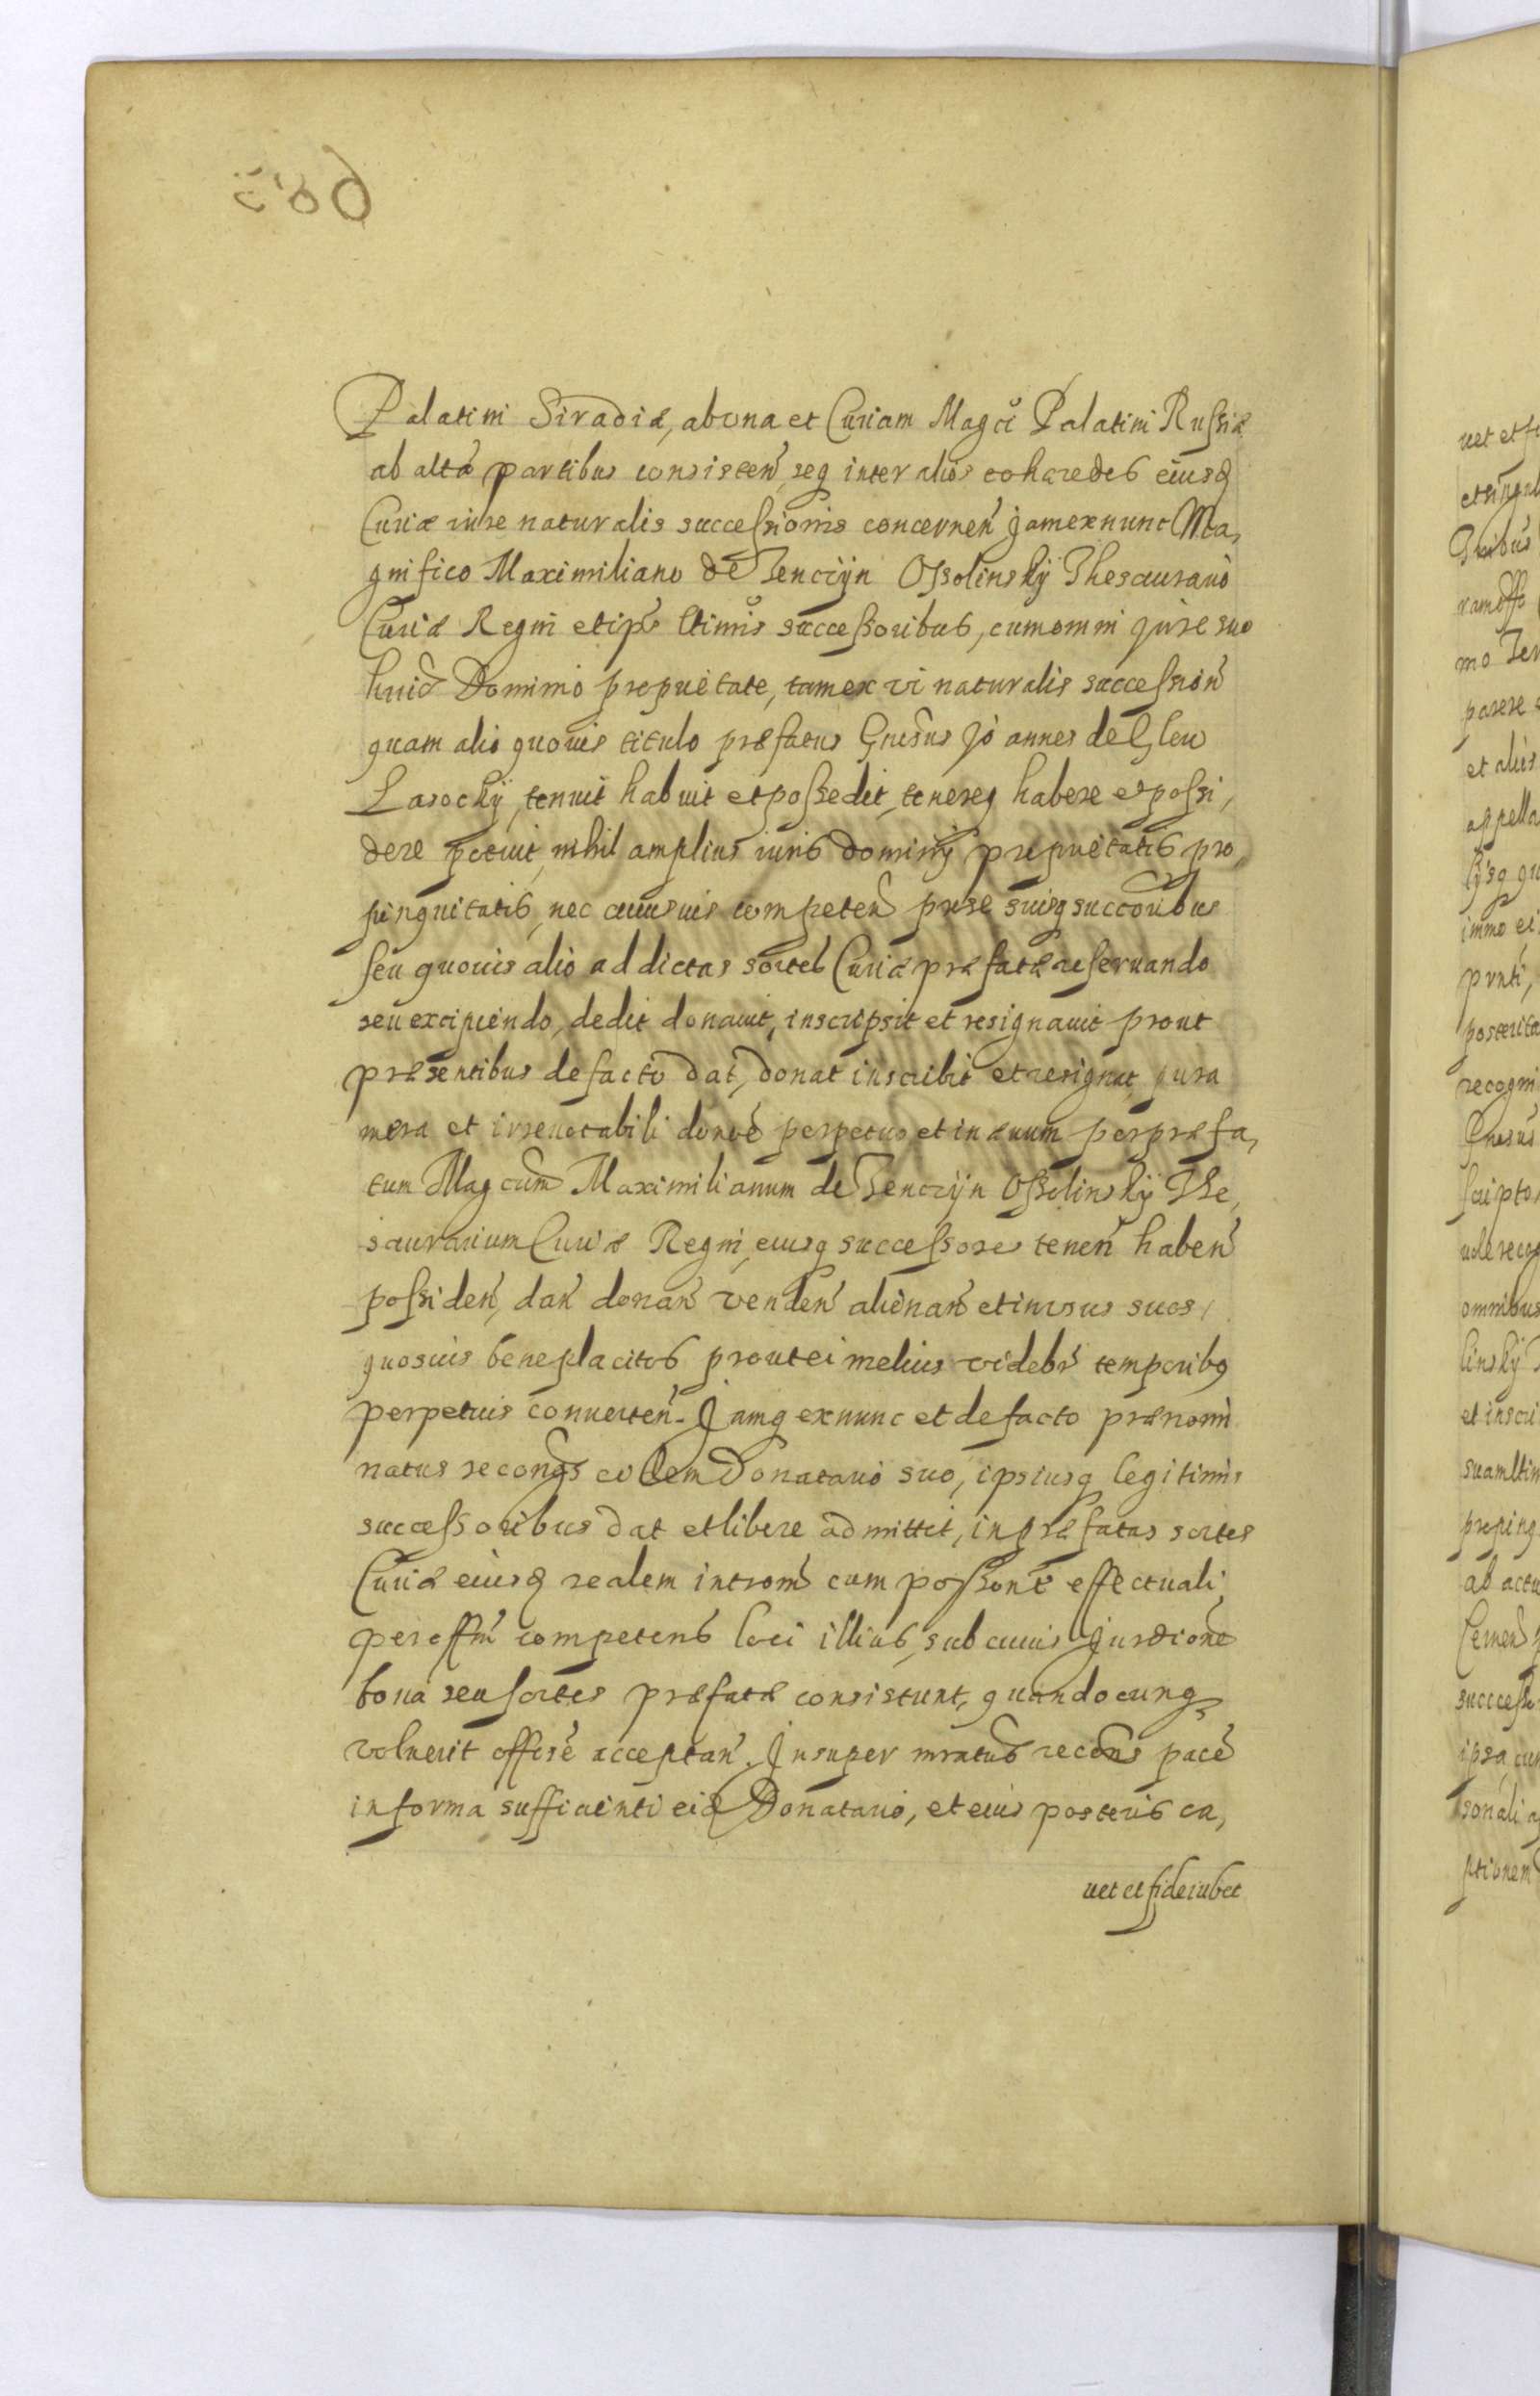 Palatini Siradiæ, ab una et Curiam Magci Palatini Russiæ
ab altâ partibus consisten, seq inter alios cohæredes eiusd
Curiæ iure naturalis successionis concernen jam exnunc Ma,
gnifico Maximiliano de Tenczÿn Ossolinskÿ Thesaurario
Curiæ Regni et ips ltimis successoribus, cum omni jure suo
huid Dominio proprietate, tam ex vi naturalis succession
quam alio quovis titulo præfatus Gnesus Joannes de
Lasockÿ, tenuit habuit et possedit, tenereq habere et possi,
dere potuit, nihil amplius iuris dominÿ proprietatis pro,
pinquitatis, nec cuiusvis competen pro se suisq succoribus
seu quovis alio ad dictas sortes Curiæ præfatæ reservando
seu excipiendo, dedit donavit, inscripsit et resignavit prout
præsentibus de facto dat, donat inscribit et resignat, pura
mera et irrevocabili donoe perpetuo et in ævum per præfa,
tum Magcum Maximilianum de Tenczÿn Ossolinskÿ The,
saurarium Curiæ Regni, eiusq successores tenen haben
possiden, dan donan venden alienan et in usus suos,
quosvis beneplacitos prout ei melius videbr temporibq
perpetuis converten. Jamq exnunc et de facto prænomi
natus recongs eidem Donatario suo, ipsiusq legitimis
successoribus dat et libere admittit, in præfatas sortes
Curiæ eiusd realem introm cum possone effectuali,
per offm competens loci illius, sub cuius Jurdione
bona seu sortes præfatæ consistunt, quandocunq
voluerit offere acceptan. Insuper mratus recons pace
in forma sufficienti eid Donatario, et eius posteris ca,
vet et fideiubet